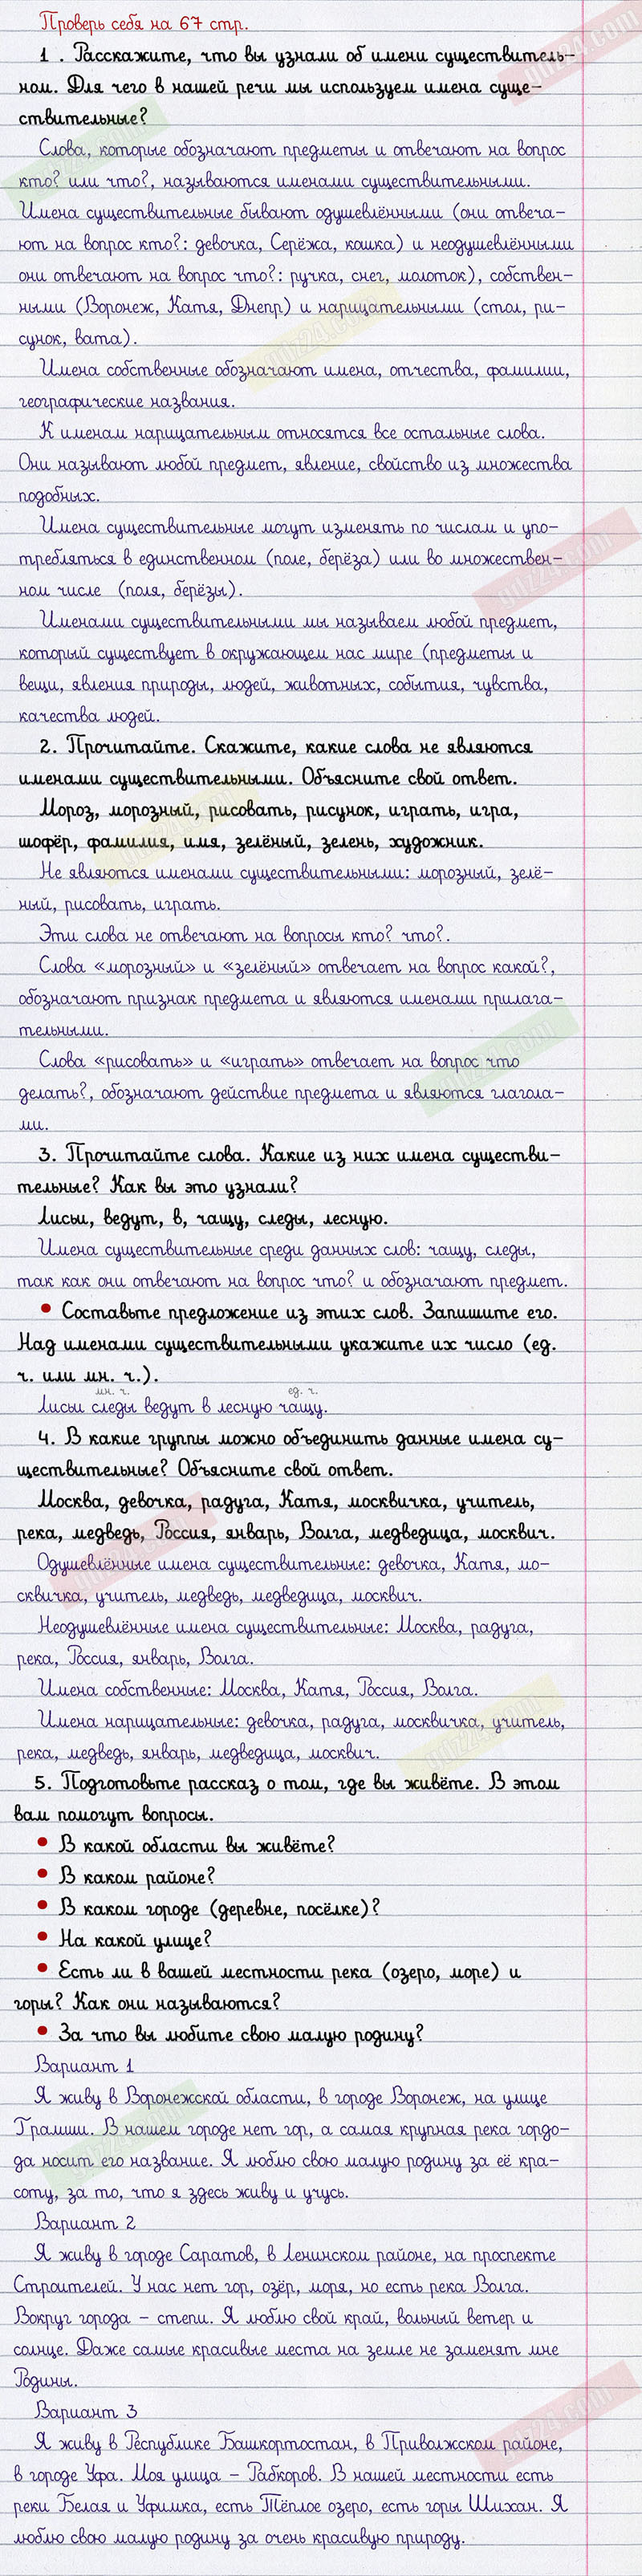 Проверь себя на 67 стр.
1 . Расскажите, что вы узнали об имени существитель-
ном. Для чего в нашей речи мы используем имена суще-
ствительные?
Слова, которые обозначают предметы и отвечают на вопрос
кто? или что?, называются именами существительными.
Имена существительные бывают одушевлёнными (они отвеча-
ют на вопрос кто?: девочка, Серёжа, кошка) и неодушевлёнными
они отвечают на вопрос что?: ручка, снег, молоток), собствен-
ными (Воронеж, Катя, Днепр) и нарицательными (стол, ри-
сунок, вата).
Имена собственные обозначают имена, отчества, фамилии,
географические названия.
К именам нарицательным относятся все остальные слова.
Они называют любой предмет, явление, свойство из множества
подобных.
Имена существительные могут изменять по числам и упо-
требляться в единственном (поле, берёза) или во множествен-
ном числе (поля, берёзы).
Именами существительными мы называем любой предмет,
который существует в окружающем нас мире (предметы и
вещи, явления природы, людей, животных, события, чувства,
качества людей.
2. Прочитайте. Скажите, какие слова не являются
именами существительными. Объясните свой ответ.
Мороз, морозный, рисовать, рисунок, играть, игра,
шофёр, фамилия, имя, зелёный, зелень, художник.
Не являются именами существительными: морозный, зелё-
ный, рисовать, играть.
Эти слова не отвечают на вопросы кто? что?.
Слова «морозный» и «зелёный» отвечает на вопрос какой?,
обозначают признак предмета и являются именами прилага-
тельными.
Слова «рисовать» и «играть» отвечает на вопрос что
делать?, обозначают действие предмета и являются глагола-
ми.
3. Прочитайте слова. Какие из них имена существи-
тельные? Как вы это узнали?
Лисьи, ведут, в, чащу, следы, лесную.
Имена существительные среди данных слов: чащу, следы,
так как они отвечают на вопрос что? и обозначают предмет.
• Составьте предложение из этих слов. Запишите его.
Над именами существительными укажите их число (ед.
ч. или мн. ч.).
мн. ч. ед. ч.
Лисьи следы ведут в лесную чащу.
4. В какие группы можно объединить данные имена су-
ществительные? Объясните свой ответ.
Москва, девочка, радуга, Катя, москвичка, учитель,
река, медведь, Россия, январь, Волга, медведица, москвич.
Одушевлённые имена существительные: девочка, Катя, мо-
сквичка, учитель, медведь, медведица, москвич.
Неодушевлённые имена существительные: Москва, радуга,
река, Россия, январь, Волга.
Имена собственные: Москва, Катя, Россия, Волга.
Имена нарицательные: девочка, радуга, москвичка, учитель,
река, медведь, январь, медведица, москвич.
5. Подготовьте рассказ о том, где вы живёте. В этом
вам помогут вопросы.
• В какой области вы живёте?
• В каком районе?
• В каком городе (деревне, посёлке)?
• На какой улице?
• Есть ли в вашей местности река (озеро, море) и
горы? Как они называются?
• За что вы любите свою малую родину?
Вариант 1
Я живу в Воронежской области, в городе Воронеж, на улице
Грамши. В нашем городе нет гор, а самая крупная река гордо-
да носит его название. Я люблю свою малую родину за её кра-
соту, за то, что я здесь живу и учусь.
Вариант 2
Я живу в городе Саратов, в Ленинском районе, на проспекте
Строителей. У нас нет гор, озёр, моря, но есть река Волга.
Вокруг города – степи. Я люблю свой край, вольный ветер и
солнце. Даже самые красивые места на земле не заменят мне
Родины.
Вариант 3
Я живу в Республике Башкортостан, в Приволжском районе,
в городе Уфа. Моя улица – Рабкоров. В нашей местности есть
реки Белая и Уфимка, есть Тёплое озеро, есть горы Шихан. Я
люблю свою малую родину за очень красивую природу.